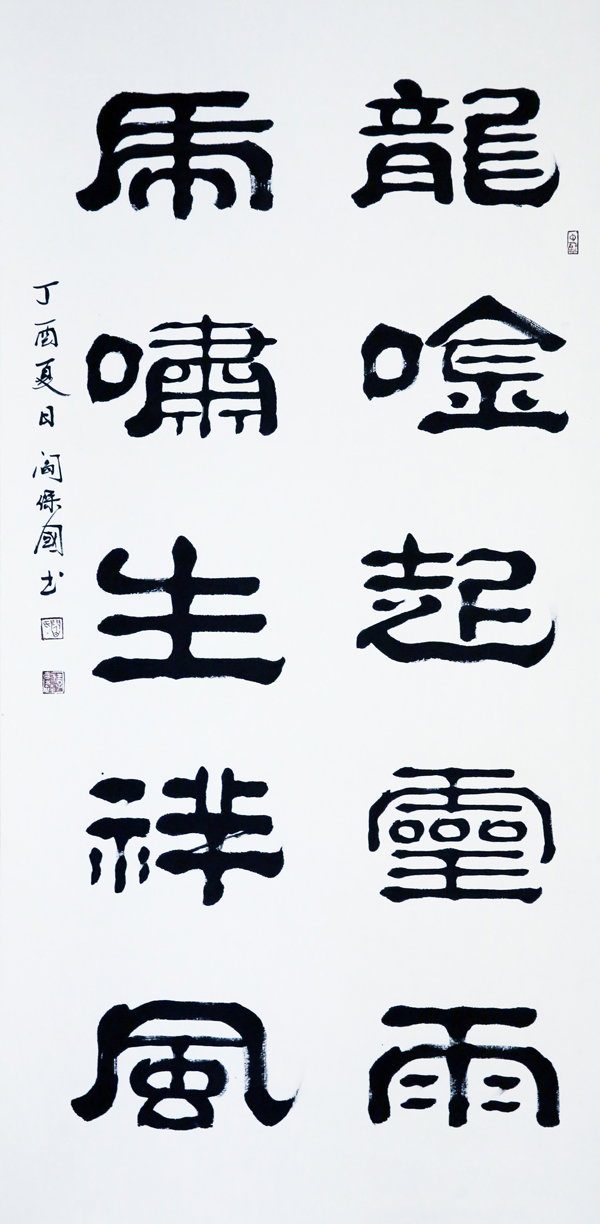 龍唫起靈雨
虎嘯生祥風
丁酉夏日阎保國书